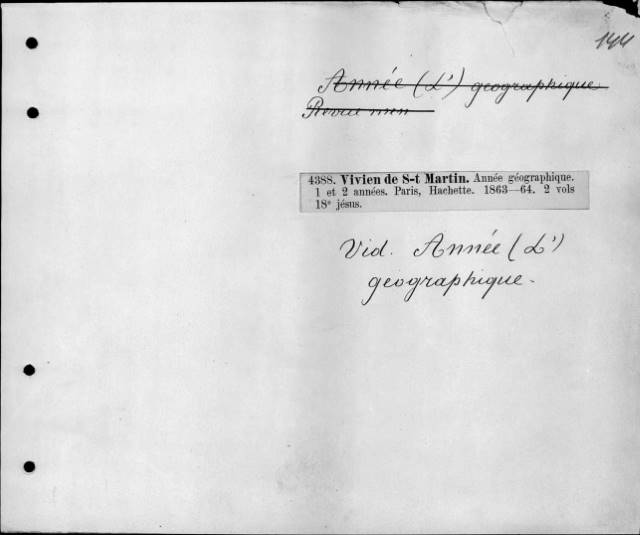 144
Année (L') geographique
Revue men
4388. Vivien de S-t Martin. Année géographique.
1 et 2 années. Paris, Hachette. 1863—64. 2 vols
18° jésus.
Vid. Année (L')
géographique.